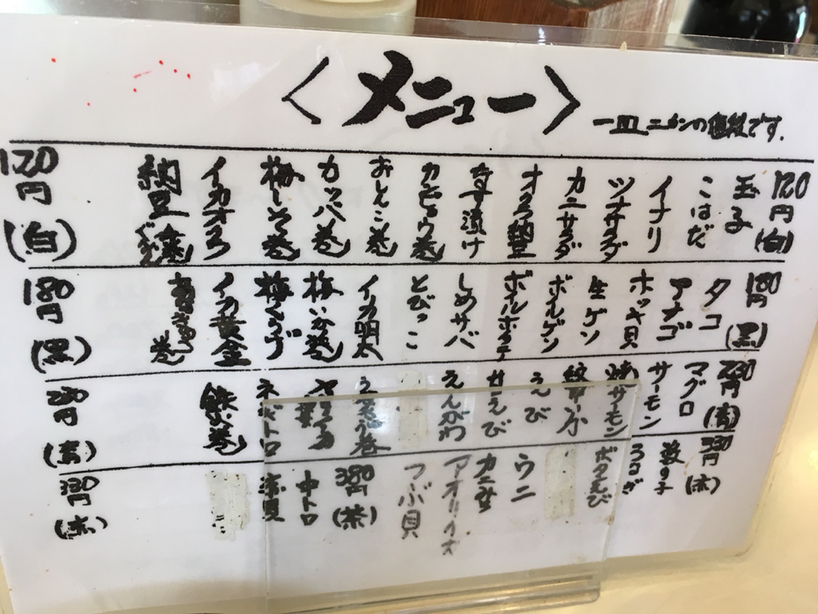 〈メニュー〉
一皿ニカンの値段です.
120円(白)
玉子
こはだ
イナリ
ツナサラダ
カニサラダ
オクラ納豆
なす漬け
カンピョウ巻
おしんこ巻
カッパ巻
梅しそ巻
イカオクラ
納豆巻
120円(白)
180円(黒)
タコ
アナゴ
ホッキ貝
生ゲソ
ボイルゲソ
ボイルホタテ
しめサバ
とびっこ
イカ明太
梅いか巻
梅くらげ
イカ黄金
巻
180円(黒)
230円(青)
マグロ
サーモン
焼サーモン
えび
甘えび
えんがわ
ネギトロ
鉄火巻
230円(青)
330円(赤)
数の子
ボタえび
ウニ
カニみそ
アオリイカ
つぶ貝
380円(茶)
中トロ
赤貝
330円(赤)